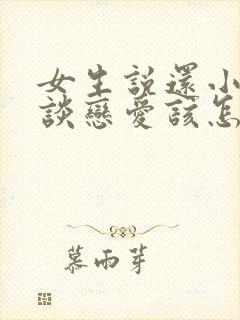 女生說還小
談戀愛該怎
慕雨芽